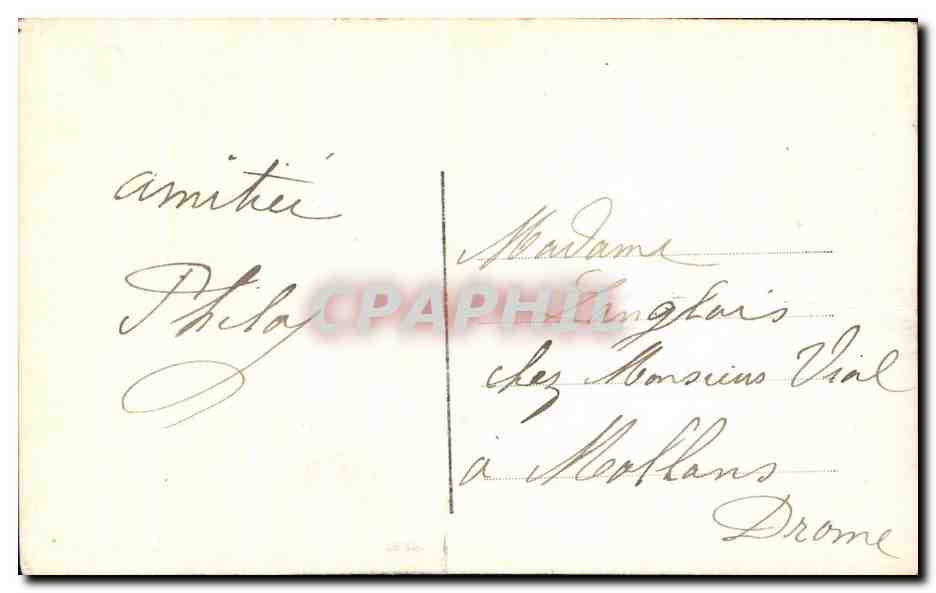 amitiés
Philo
Madame
Langlois
chez Monsieur Vial
à Mollans
Drome
CPAPHIL